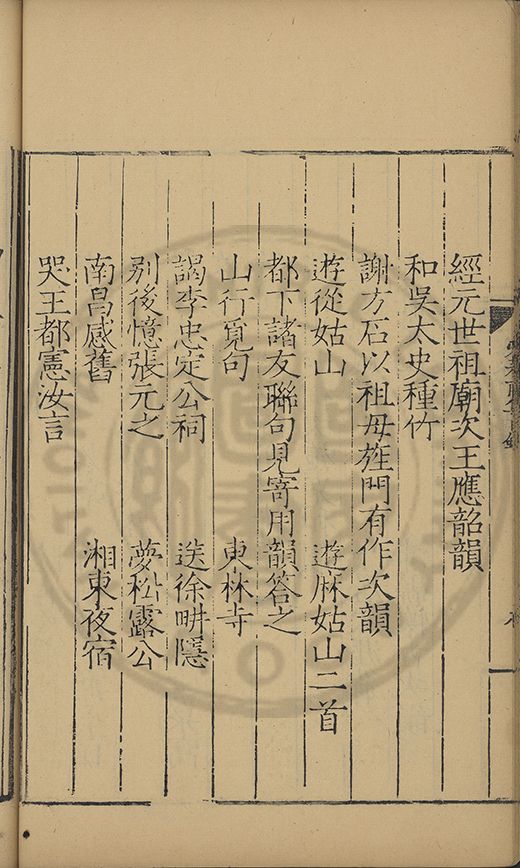 經元世祖廟次王應韶韻
和吳太史種竹
謝方石以祖母旌門有作次韻
遊從姑山　遊麻姑山二首
都下諸友聯句見寄用韻答之
山行覓句　東林寺
謁李忠定公祠　送徐畊隱
別後憶張元之　夢松露公
南昌感舊　湘東夜宿
哭王都憲汝言